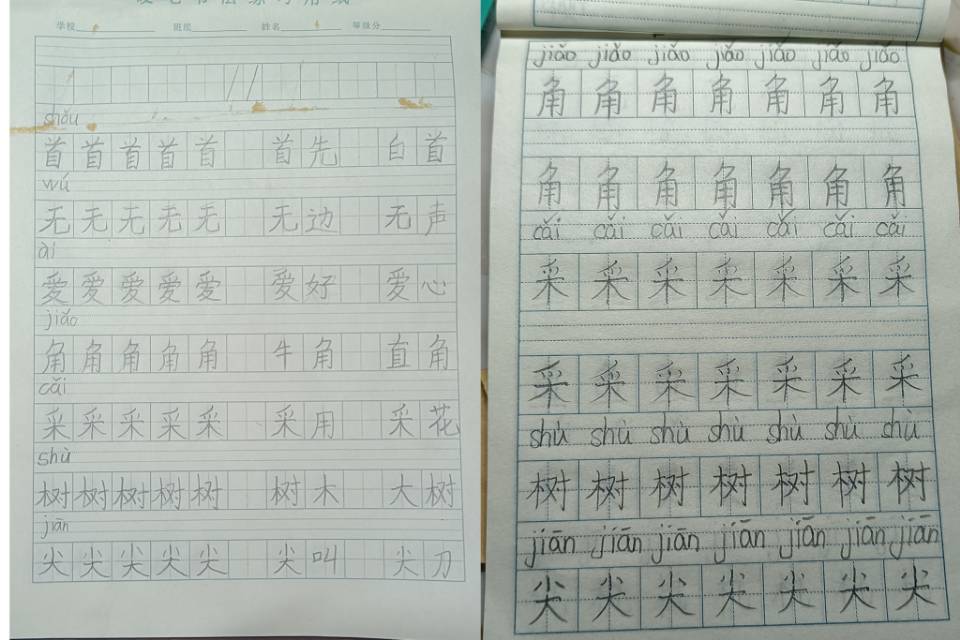 学校 班级 姓名 等级分
shǒu
首首首首首 首先 白首
wú
无无无无无 无边 无声
ài
爱爱爱爱爱 爱好 爱心
jiǎo
角角角角角 牛角 直角
cǎi
采采采采采 采用 采花
shù
树树树树树 树木 大树
jiān
尖尖尖尖尖 尖叫 尖刀
jiǎo jiǎo jiǎo jiǎo jiǎo jiǎo jiǎo
角角角角角角角
角角角角角角角
cǎi cǎi cǎi cǎi cǎi cǎi cǎi
采采采采采采采
采采采采采采采
shù shù shù shù shù shù shù
树树树树树树树
jiān jiān jiān jiān jiān jiān jiān
尖尖尖尖尖尖尖